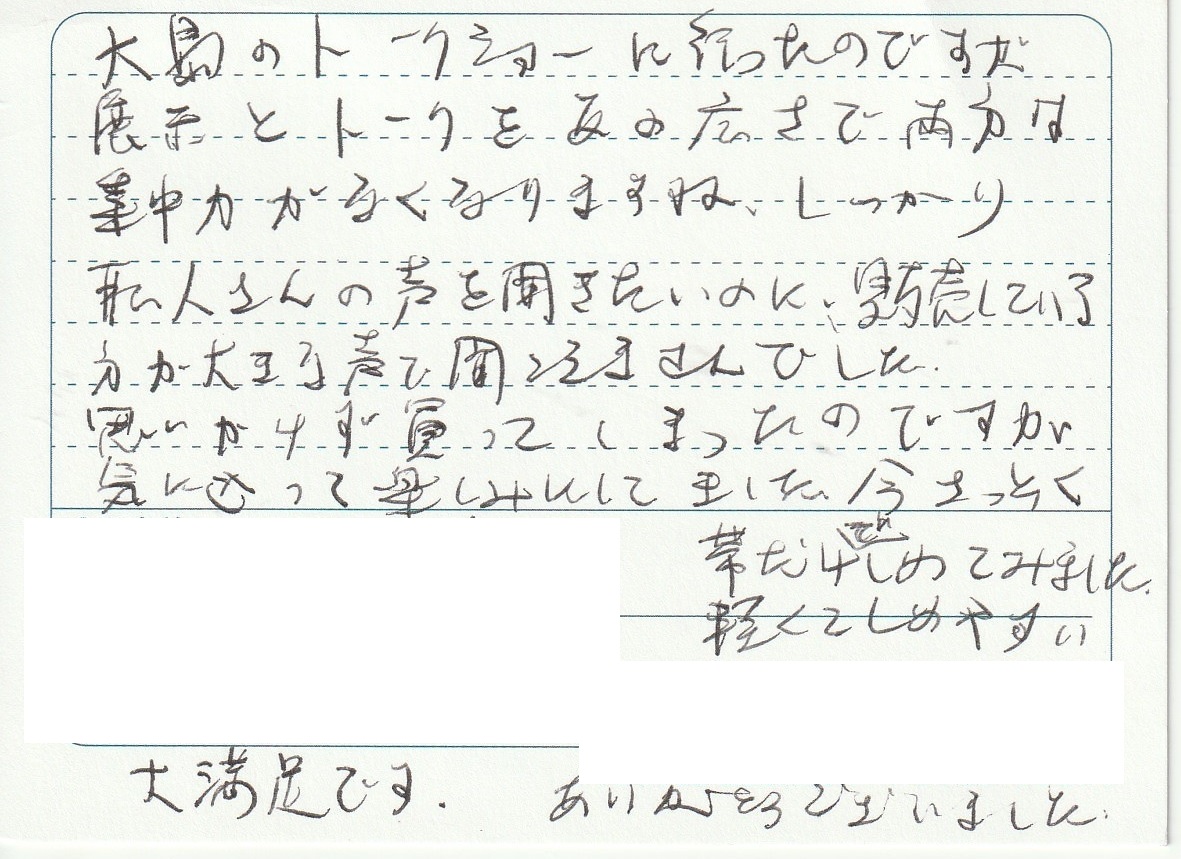 大島のトークショーに行ったのですが
展示とトークを 広さで両方は
集中力がなくなりますね、しっかり
人さんの声を聞きたいのに、販売している
方が大きな声で聞こえませんでした.
思いかけず買ってしまったのですが
気に入って楽しみにしてました.今さっそく
帯だけでもしめてみました.
軽くてしめやすい
大満足です. ありがとうございました.